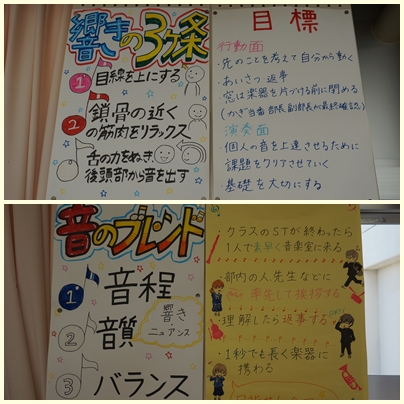 響きの3ヶ条
1 目線を上にする
2 鎖骨の近く
の筋肉をリラックス
舌の力をぬき
後頭部から音を出す
目標
行動面
・先のことを考えて自分から動く
・あいさつ 返事
・窓は楽器を片づける前に閉める
(かぎ当番 部長 副部長が最終確認)
演奏面
・個人の音を上達させるために
課題をクリアさせていく
・基礎を大切にする
音のブレンド
1 音程
2 音質
響き
ニュアンス
3 バランス
・クラスのSTが終わったら
1人で素早く音楽室に来る
・部内の人、先生などに
率先して挨拶する
・理解したら返事する
・1秒でも長く楽器に
携わる